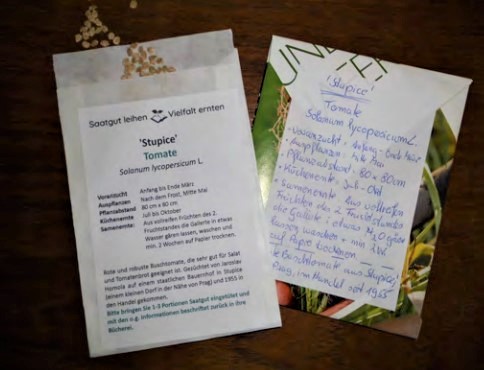 Saatgut leihen Vielfalt ernten
'Stupice'
Tomate
Solanum lycopersicum L.
Voranzucht Anfang bis Ende März
Auspflanzen Nach dem Frost, Mitte Mai
Pflanzabstand 80 cm x 80 cm
Küchenernte Juli bis Oktober
Samenernte: Aus vollreifen Früchten des 2.
Fruchtstandes die Gallerte in etwas
Wasser gären lassen, waschen und
min. 2 Wochen auf Papier trocknen.
Rote und robuste Buschtomate, die sehr gut für Salat
und Tomatenbrot geeignet ist. Gezüchtet von Jaroslav
Homola auf einem staatlichen Bauernhof in Stupice
(einem kleinen Dorf in der Nähe von Prag) und 1955 in
den Handel gekommen.
Bitte bringen Sie 1-3 Portionen Saatgut eingetütet und
mit den o.g. Informationen beschriftet zurück in Ihre
Bücherei.
'Stupice'
Tomate
Solanum lycopersicum L.
Voranzucht: Anfang - Ende März
Auspflanzen:
80 x 80cm
Küchenernte: Juli - Okt
Samenernte: Aus vollreifen
Früchten des 2. Fruchtstandes
die Gallerte i etwas H2O gären
lassen, waschen + min. 2 Wo
auf Papier trocknen
Buschtomate aus Stupice
Prag, im Handel seit 1955